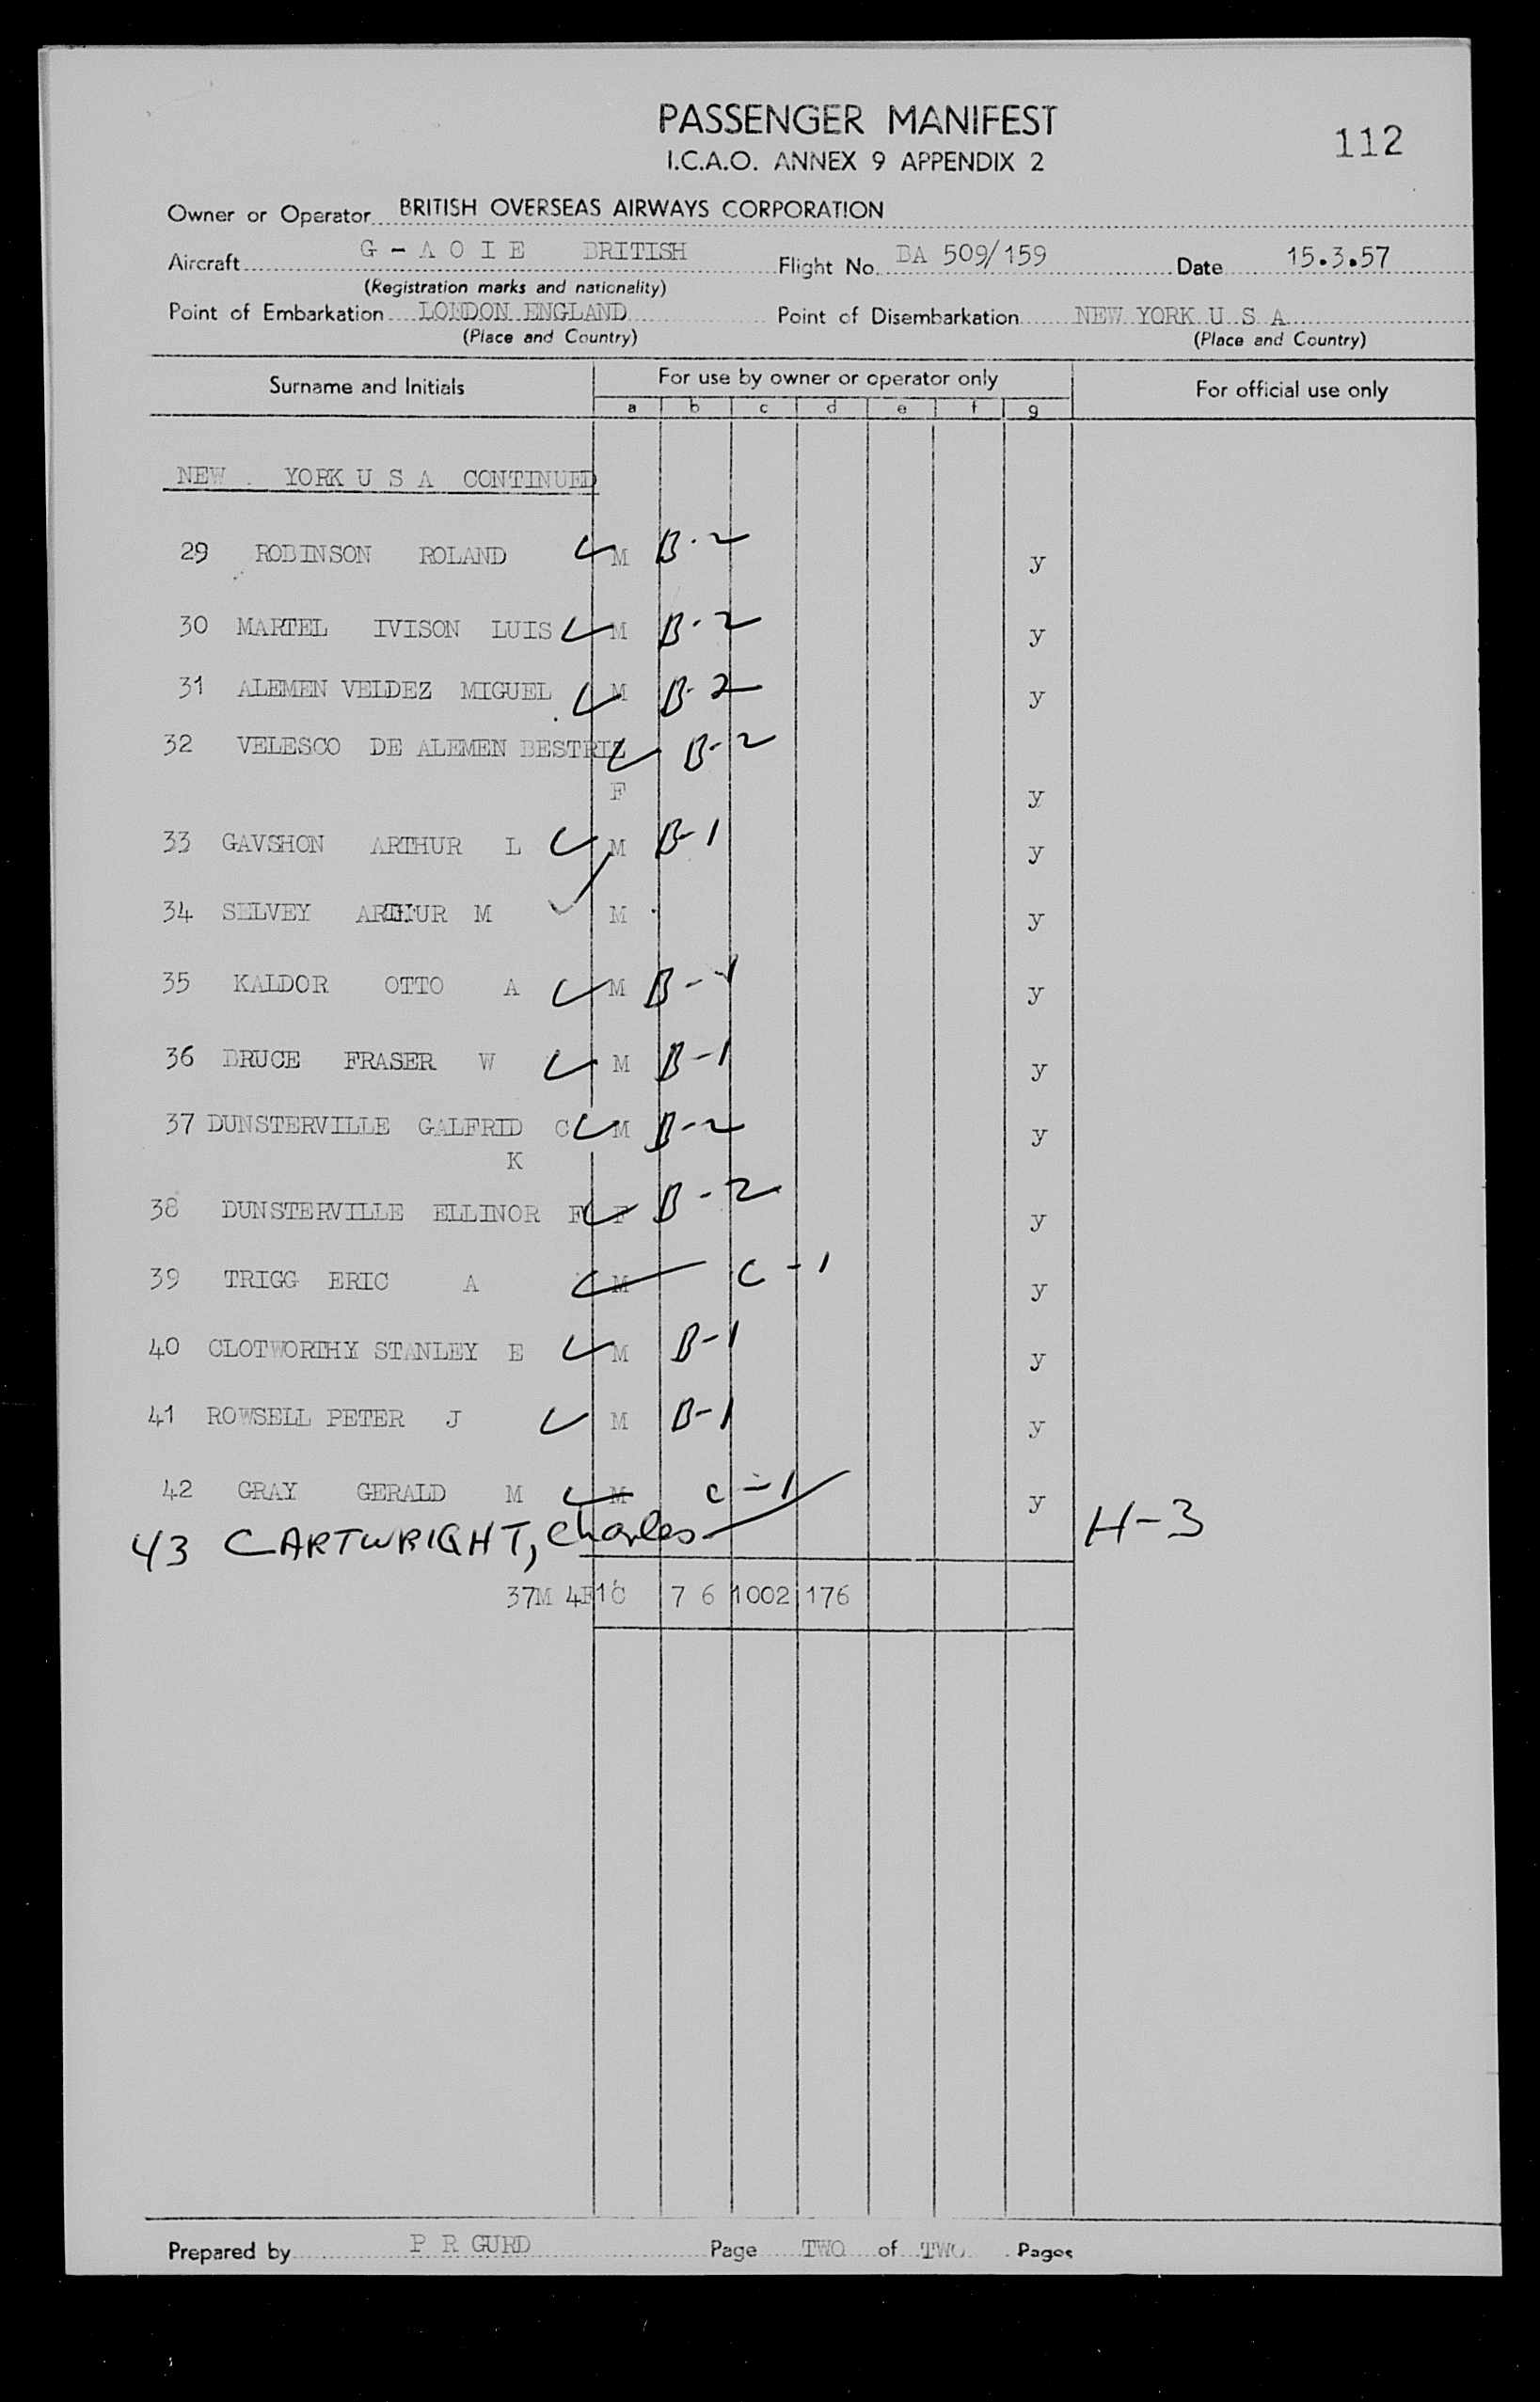 PASSENGER MANIFEST
112
I.C.A.O. ANNEX 9 APPENDIX 2
Owner or Operator BRITISH OVERSEAS AIRWAYS CORPORATION
Aircraft G - A O I E BRITISH Flight No. BA 509/159 Date 15.3.57
(Registration marks and nationality)
Point of Embarkation LONDON ENGLAND Point of Disembarkation NEW YORK U S A
(Place and Country) (Place and Country)
Surname and Initials For use by owner or operator only For official use only
a b c d e f g
NEW YORK U S A CONTINUED
29 ROBINSON ROLAND M B-2 y
30 MARTEL IVISON LUIS M B-2 y
31 ALEMEN VELDEZ MIGUEL M B-2 y
32 VELESCO DE ALEMEN BESTRIZ B-2
F y
33 GAVSHON ARTHUR L M B-1 y
34 SELVEY ARTHUR M M y
35 KALDOR OTTO A M B-1 y
36 BRUCE FRASER W M B-1 y
37 DUNSTERVILLE GALFRID C M B-2 y
K
38 DUNSTERVILLE ELLINOR F F B-2 y
39 TRIGG ERIC A M C-1 y
40 CLOTWORTHY STANLEY E M B-1 y
41 ROWSELL PETER J M B-1 y
42 GRAY GERALD M M C-1 y
43 CARTWRIGHT, Charles H-3
37M 4F 1C 7 6 1002 176
Prepared by P R GURD Page TWO of TWO Pages